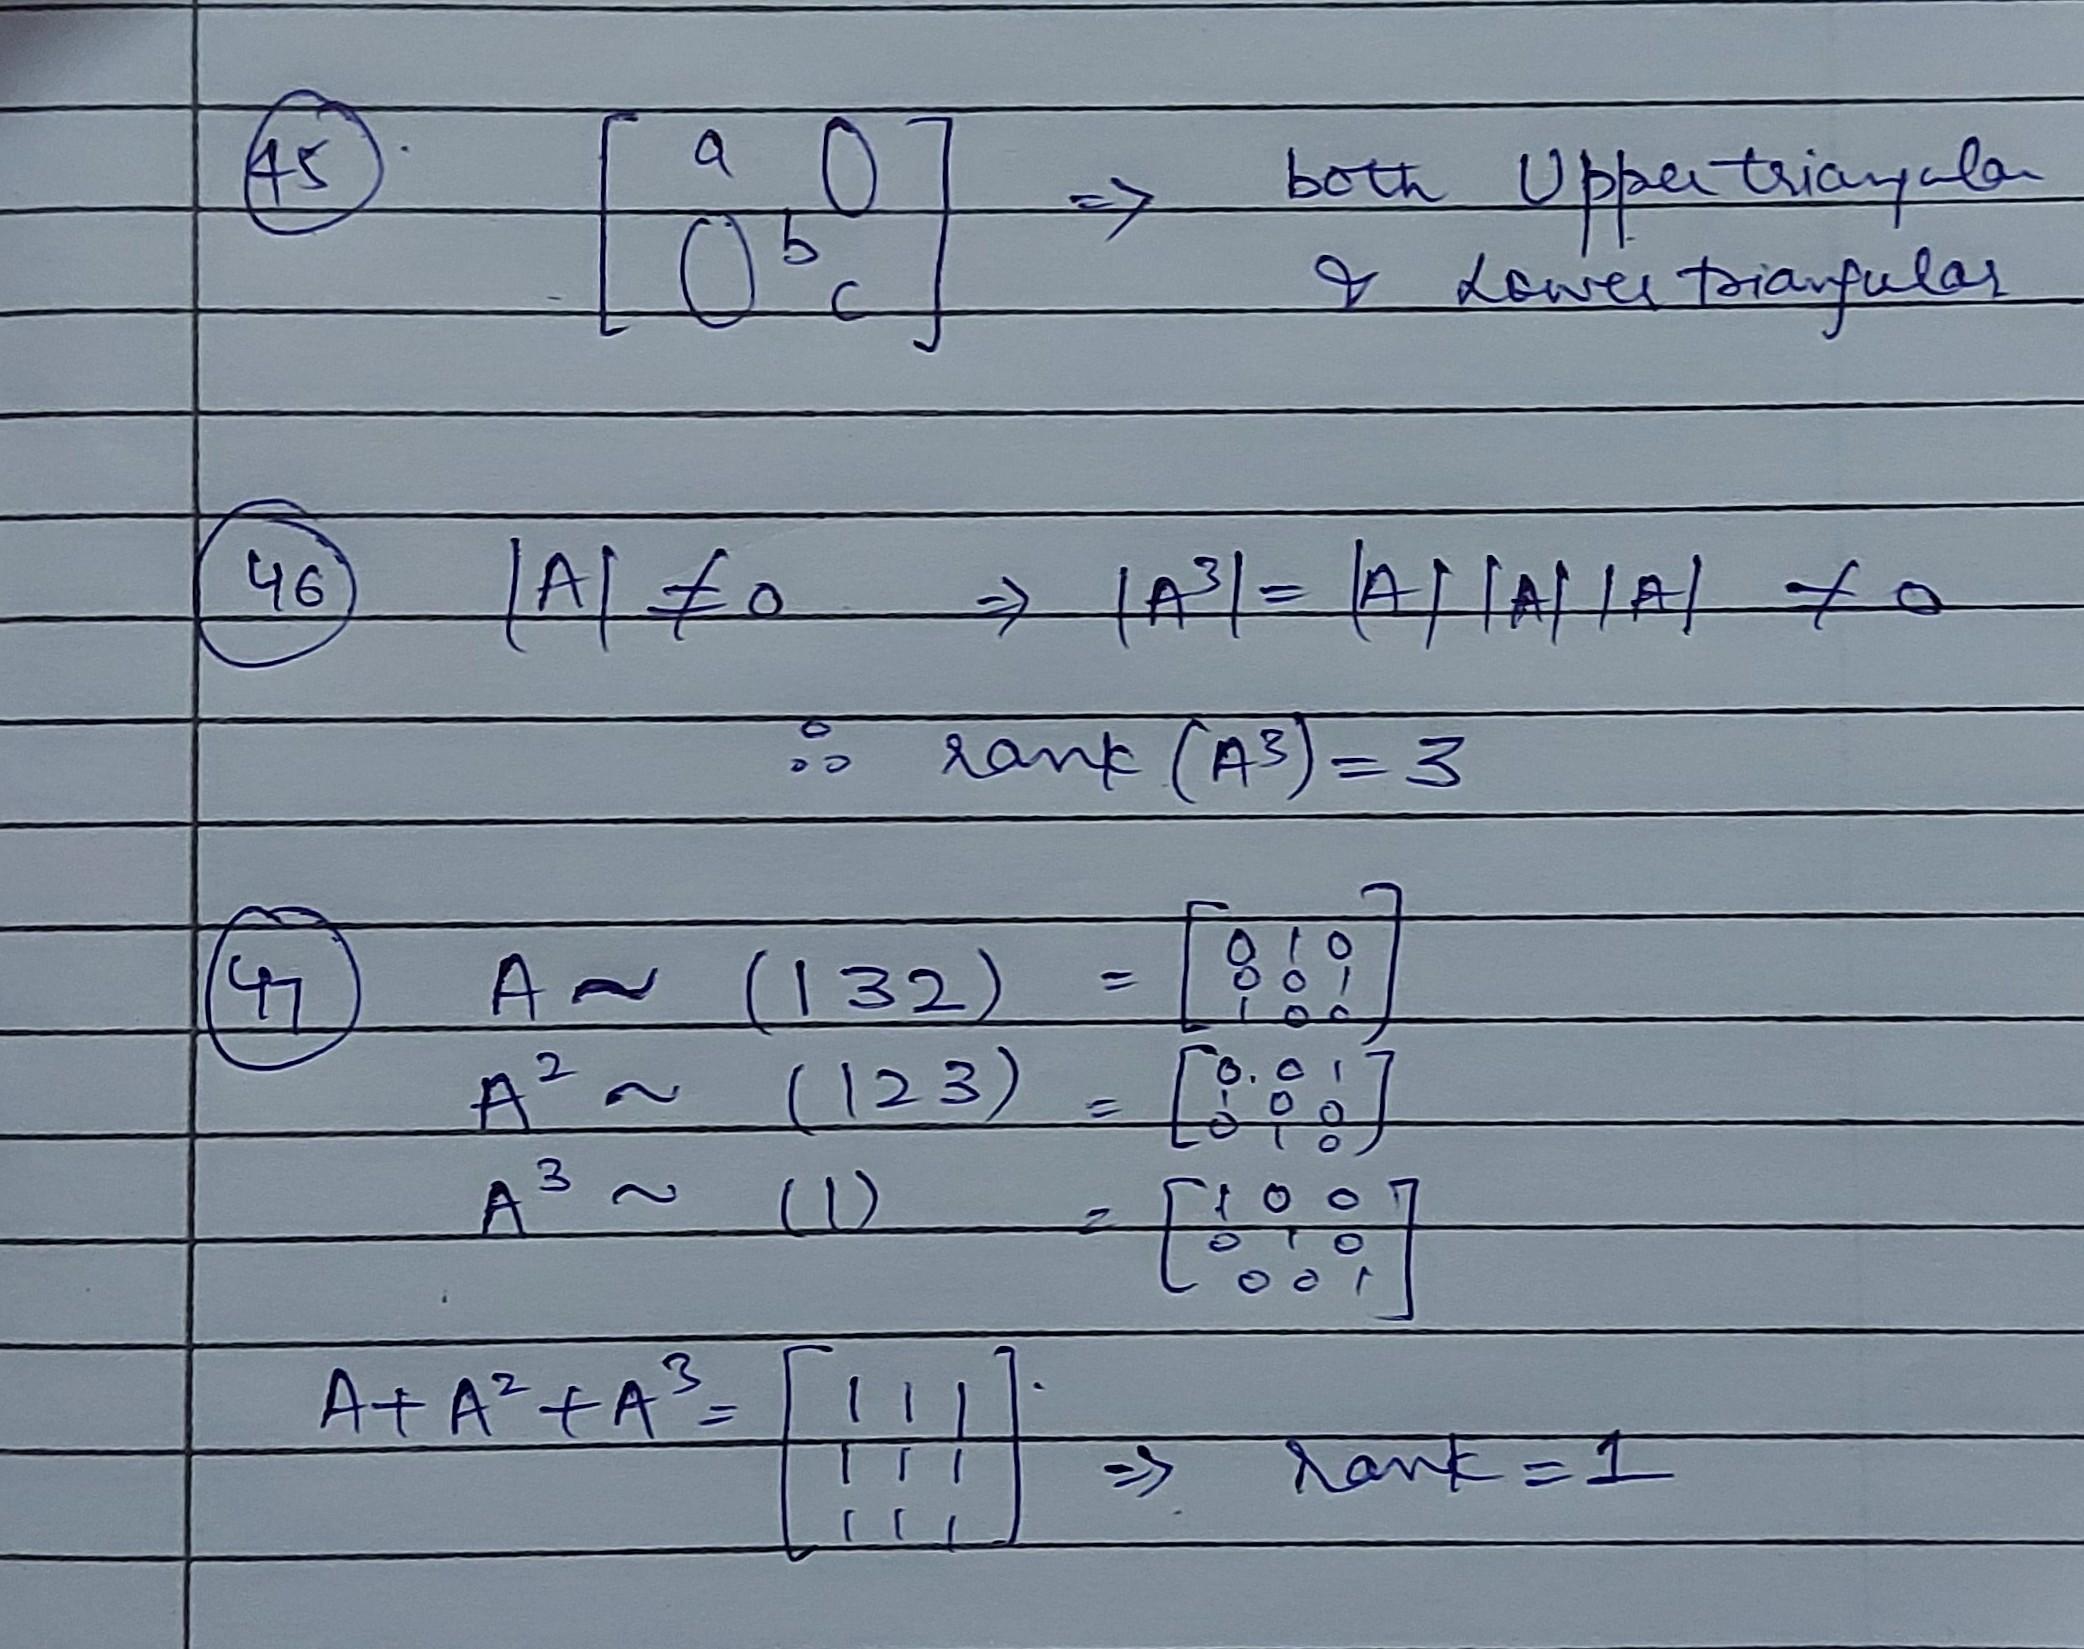 45. [ a 0 ] => both Upper triangular
[ 0 b c ] & Lower triangular
46 |A| ≠ 0 => |A³| = |A| |A| |A| ≠ 0
∴ rank (A³) = 3
47 A ~ (132) = [ 0 1 0
0 0 1
1 0 0 ]
A² ~ (123) = [ 0. 0 1
1 0 0
0 1 0 ]
A³ ~ (1) = [ 1 0 0
0 1 0
0 0 1 ]
A + A² + A³ = [ 1 1 1
1 1 1 => rank = 1
1 1 1 ]